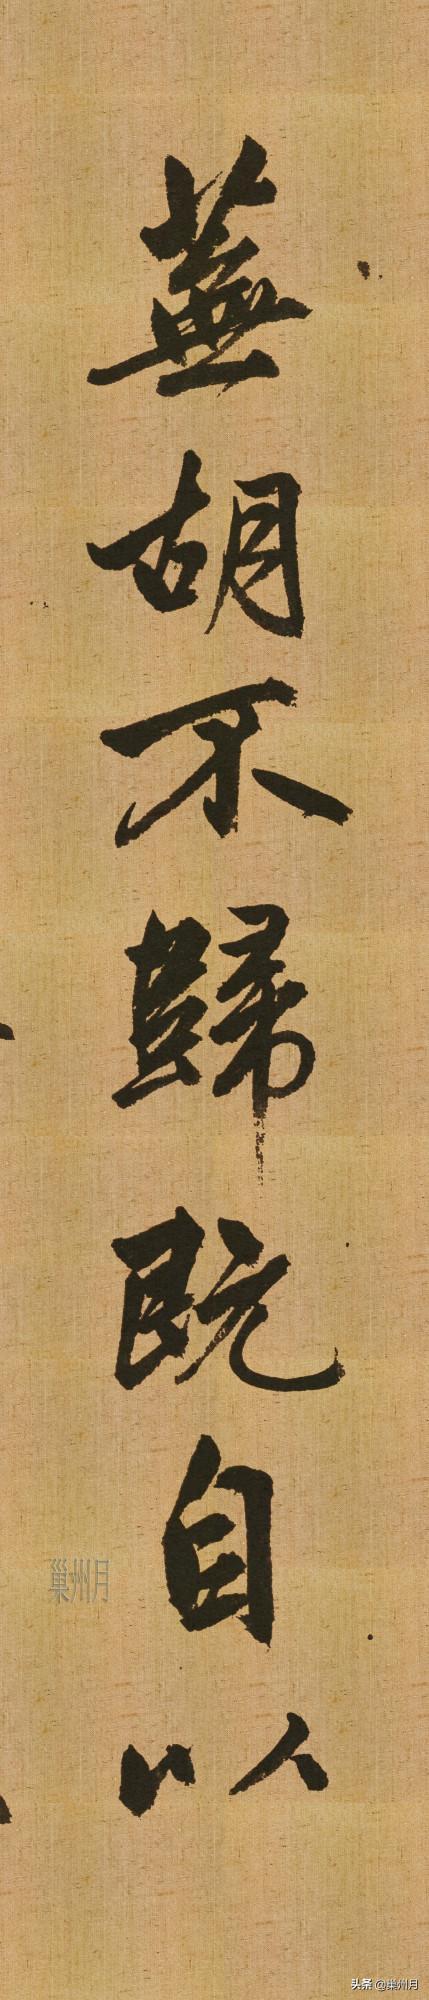 蕪胡不歸既自以
巢州月
头条 @巢州月